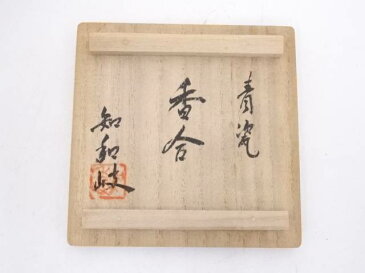 青瓷
香合
知和岐